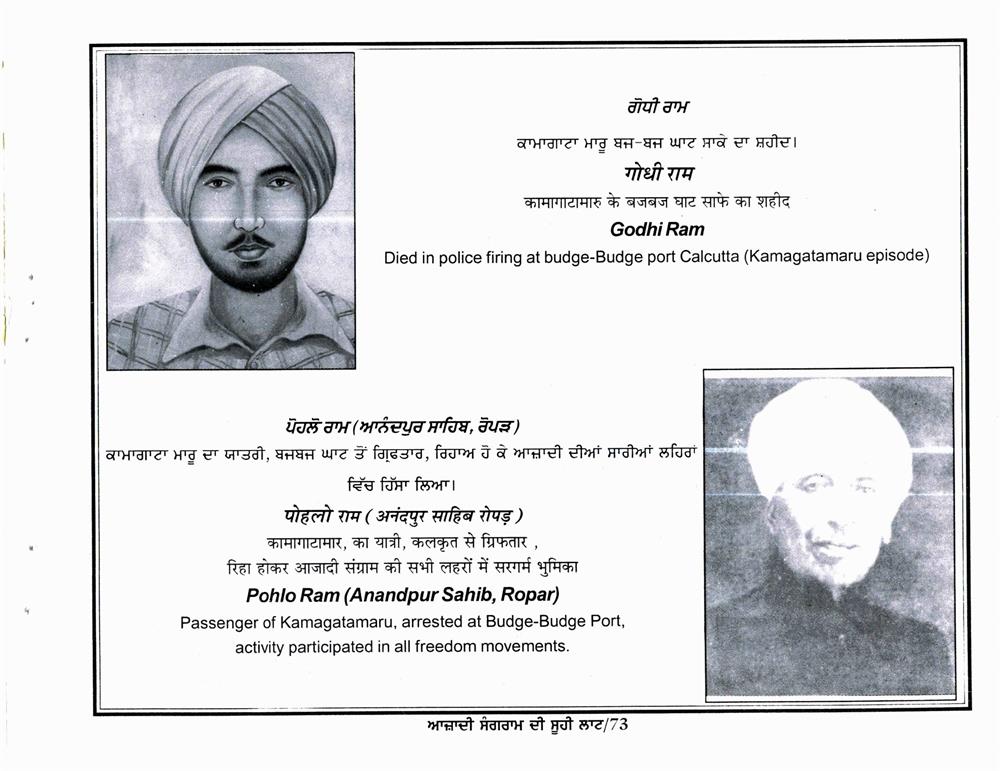 ਗੋਧੀ ਰਾਮ
ਕਾਮਾਗਾਟਾ ਮਾਰੂ ਬਜ-ਬਜ ਘਾਟ ਸਾਕੇ ਦਾ ਸ਼ਹੀਦ।
गोधी राम
कामागाटामारु के बजबज घाट साफे का शहीद
Godhi Ram
Died in police firing at budge-Budge port Calcutta (Kamagatamaru episode)
ਪੋਹਲੋ ਰਾਮ (ਆਨੰਦਪੁਰ ਸਾਹਿਬ, ਰੋਪੜ)
ਕਾਮਾਗਾਟਾ ਮਾਰੂ ਦਾ ਯਾਤਰੀ, ਬਜਬਜ ਘਾਟ ਤੋਂ ਗ੍ਰਿਫਤਾਰ, ਰਿਹਾਅ ਹੋ ਕੇ ਆਜ਼ਾਦੀ ਦੀਆਂ ਸਾਰੀਆਂ ਲਹਿਰਾਂ
ਵਿੱਚ ਹਿੱਸਾ ਲਿਆ।
पोहलो राम ( अनंदपुर साहिब रोपड़ )
कामागाटामार, का यात्री, कलकृत से ग्रिफतार ,
रिहा होकर आजादी संग्राम की सभी लहरों में सरगर्म भुमिका
Pohlo Ram (Anandpur Sahib, Ropar)
Passenger of Kamagatamaru, arrested at Budge-Budge Port,
activity participated in all freedom movements.
ਆਜ਼ਾਦੀ ਸੰਗਰਾਮ ਦੀ ਸੂਹੀ ਲਾਟ/73